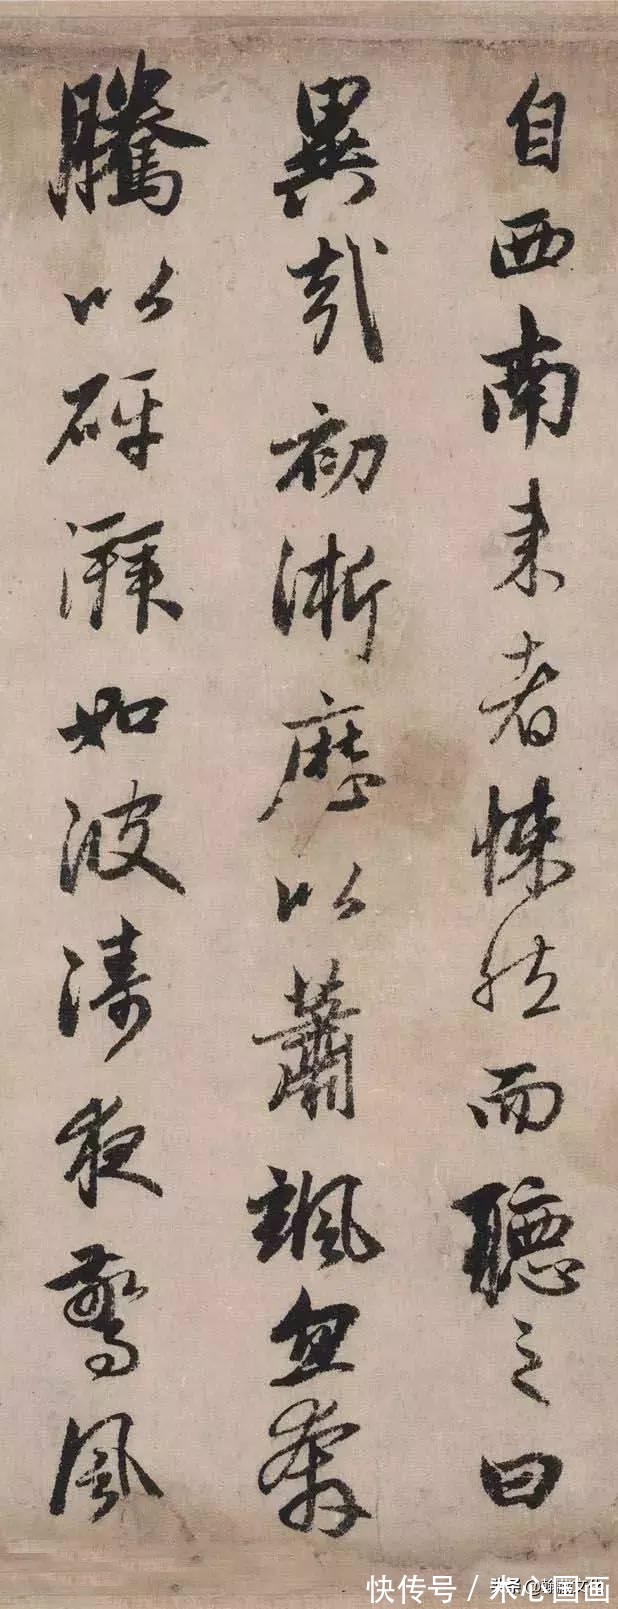 自西南来者悚然而聽之曰
異哉初淅歷以蕭颯忽奔
騰以砰湃如波濤夜驚風
快传号 /